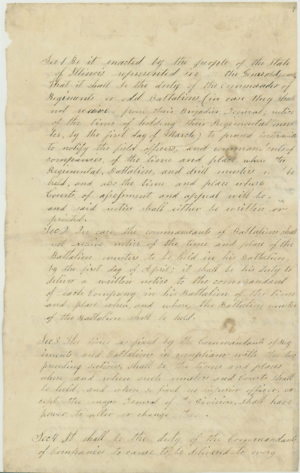 Sec 1 Be it enacted by the people of the State
of Illinois represented in the General
That it shall be the duty of the Commandants of
Regiments or odd Battalions (in case they shall
not receive from their Brigadier General notice
of the time of holding their Regimental
ter, by the first day of March) to proceed
to notify the field officers, and commandants of
companies, of the time and place when
Regimental, Battalion and drill musters be
held, and also the time and place where
Courts of assessment and appeal will be
and said notice shall either be written or
printed.
Sec 2 In case the commandants of Battalions shall
not receive notice of the time and place of the
Battalion muster to be held in his Battalion,
by the first day of April; it shall be his duty to
deliver a written notice to the commandant
of each Company in his Battalion of the time
and place when and where, the Battalion muster
of the Battalion shall be held.
Sec 3 The time as fixed by the Commandants of
iments and Battalions in compliance with the two
preceding sections, shall be the times and places
when and where such musters and Courts shall
be held, and when so fixed no superior officer
except the Major General of Division, shall have
power to alter or change
Sec 4 It shall be the duty of the Commandant
of Companies to cause to be delivered to every